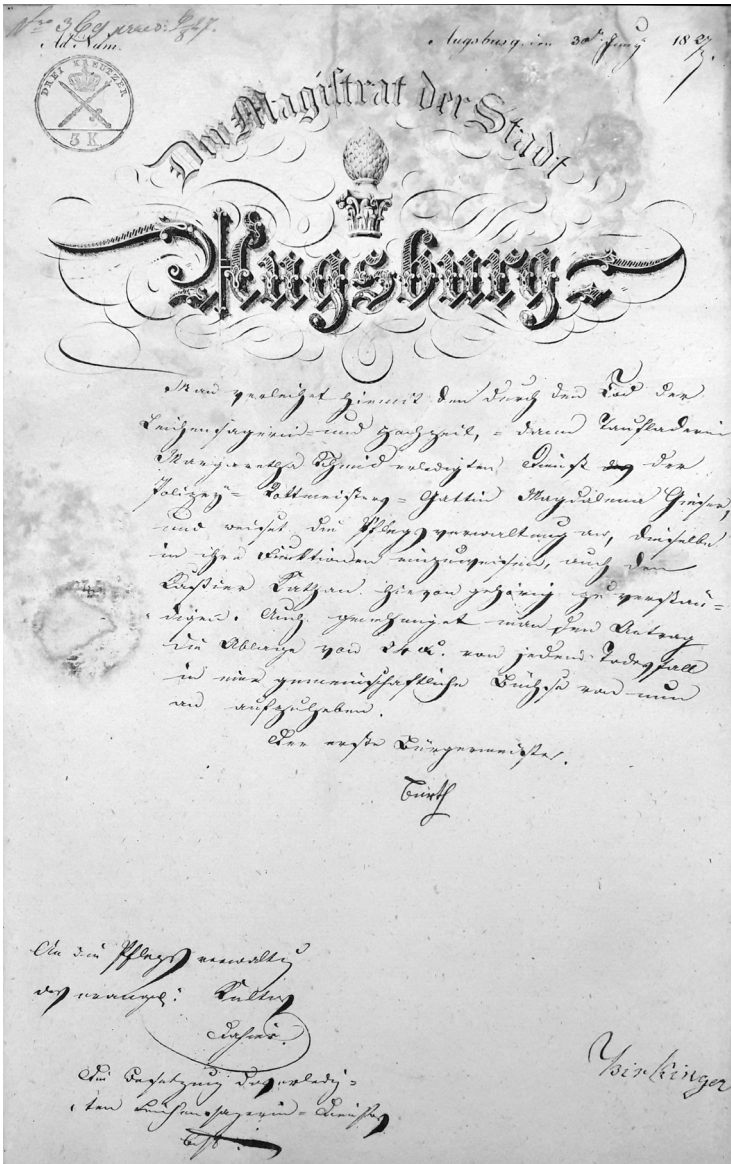 Nro 369 praes:
Ad Num.
Augsburg, den 30t Juny 1827.
DREI KREUTZER
3 K.
Der Magistrat der Stadt
Augsburg
Man verleihet hiemit den durch den Tod der
Leichensagerin- und Hochzeit, - dann Taufladerin
Margaretha Schmid erledigten Dienst der
Polizey- Rottmeisters- Gattin Magdalena
und weiset die Pflegsverwaltung an, dieselbe
in ihre Funktionen einzuweisen, auch den
Kassier Kathan hievon gehörig zu verstän-
digen. Auch genehmiget man den Antrag
die Ablage von 24 x. von jedem Todesfall
in eine gemeinschaftliche Büchse von nun
an aufzuheben.
Der erste Bürgermeister.
Barth
An die Pflegsverwaltung
des evangel: Kultus
dahier.
Die Besetzung des erledig-
ten Leichensagerin-Dienstes
betr: